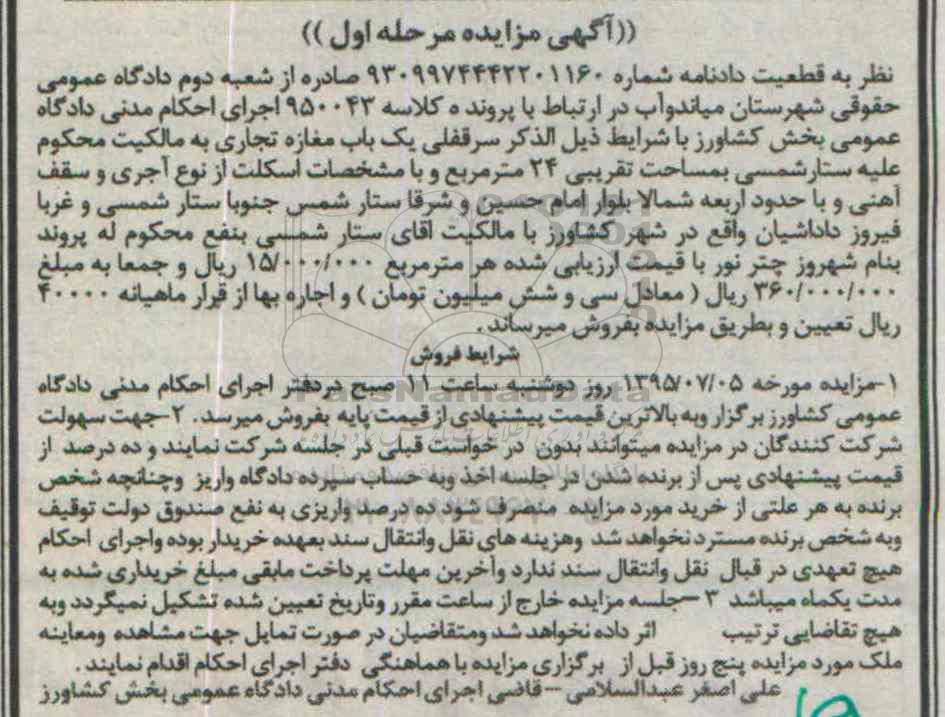 ((آگهی مزایده مرحله اول))
نظر به قطعیت دادنامه شماره ۹۳۰۹۹۷۴۴۴۲۲۰۱۱۶۰ صادره از شعبه دوم دادگاه عمومی
حقوقی شهرستان میاندوآب در ارتباط با پرونده کلاسه ۹۵۰۰۴۳ اجرای احکام مدنی دادگاه
عمومی بخش کشاورز با شرایط ذیل الذکر سرقفلی یک باب مغازه تجاری به مالکیت محکوم
علیه ستارشمسی بمساحت تقریبی ۲۴ مترمربع و با مشخصات اسکلت از نوع آجری و سقف
آهنی و با حدود اربعه شمالا بلوار امام حسین و شرقا ستار شمس جنوبا ستار شمسی و غربا
فیروز داداشیان واقع در شهر کشاورز با مالکیت آقای ستار شمسی بنفع محکوم له پروند
بنام شهروز چتر نور با قیمت ارزیابی شده هر مترمربع ۱۵/۰۰۰/۰۰۰ ریال و جمعا به مبلغ
۳۶۰/۰۰۰/۰۰۰ ریال ( معادل سی و شش میلیون تومان ) و اجاره بها از قرار ماهیانه ۴۰۰۰۰
ریال تعیین و بطریق مزایده بفروش میرساند .
شرایط فروش
۱-مزایده مورخه ۱۳۹۵/۰۷/۰۵ روز دوشنبه ساعت ۱۱ صبح دردفتر اجرای احکام مدنی دادگاه
عمومی کشاورز برگزار وبه بالاترین قیمت پیشنهادی از قیمت پایه بفروش میرسد . ۲-جهت سهولت
شرکت کنندگان در مزایده میتوانند بدون در خواست قبلی در جلسه شرکت نمایند و ده درصد از
قیمت پیشنهادی پس از برنده شدن در جلسه اخذ وبه حساب سپرده دادگاه واریز وچنانچه شخص
برنده به هر علتی از خرید مورد مزایده منصرف شود ده درصد واریزی به نفع صندوق دولت توقیف
وبه شخص برنده مسترد نخواهد شد وهزینه های نقل وانتقال سند بعهده خریدار بوده واجرای احکام
هیچ تعهدی در قبال نقل وانتقال سند ندارد وآخرین مهلت پرداخت مابقی مبلغ خریداری شده به
مدت یکماه میباشد ۳-جلسه مزایده خارج از ساعت مقرر وتاریخ تعیین شده تشکیل نمیگردد وبه
هیچ تقاضایی ترتیب اثر داده نخواهد شد ومتقاضیان در صورت تمایل جهت مشاهده ومعاینه
ملک مورد مزایده پنج روز قبل از برگزاری مزایده با هماهنگی دفتر اجرای احکام اقدام نمایند .
علی اصغر عبدالسلامی -قاضی اجرای احکام مدنی دادگاه عمومی بخش کشاورز
ParsNamadData